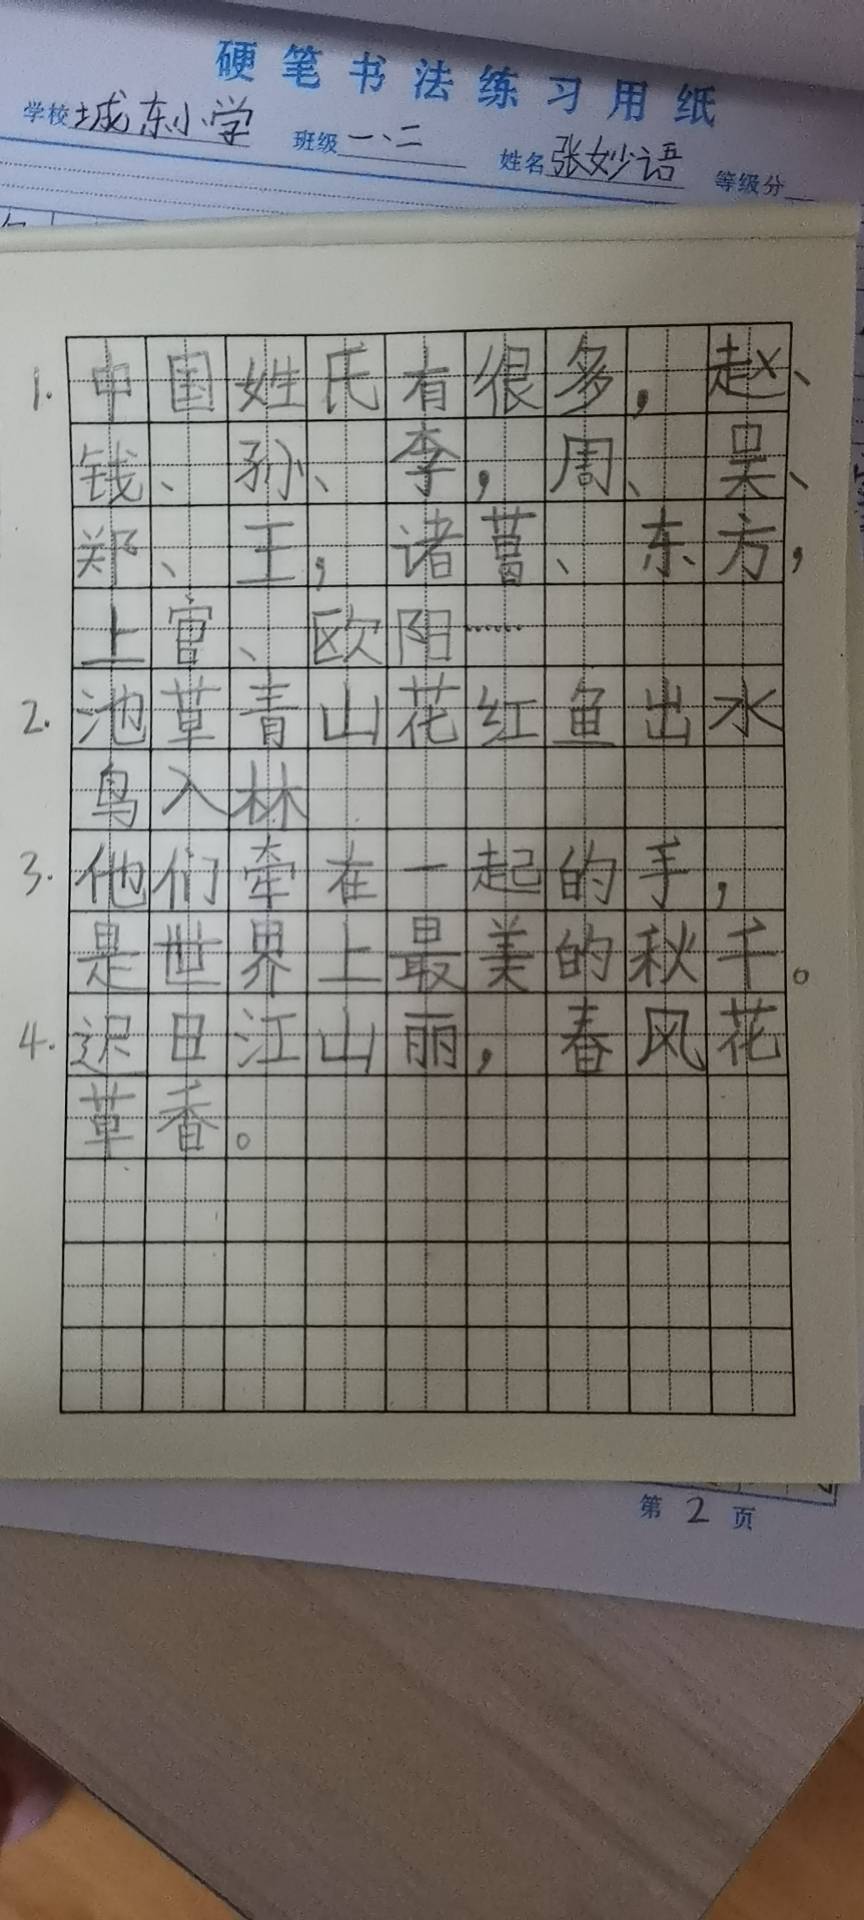 硬笔书法练习用纸
学校 城东小学 班级 一、二 姓名 张妙语 等级分
1. 中国姓氏有很多，赵、
钱、孙、李，周、吴、
郑、王，诸葛、东方，
上官、欧阳……
2. 池草青山花红鱼出水
鸟入林
3. 他们牵在一起的手，
是世界上最美的秋千。
4. 迟日江山丽，春风花
草香。
第 2 页